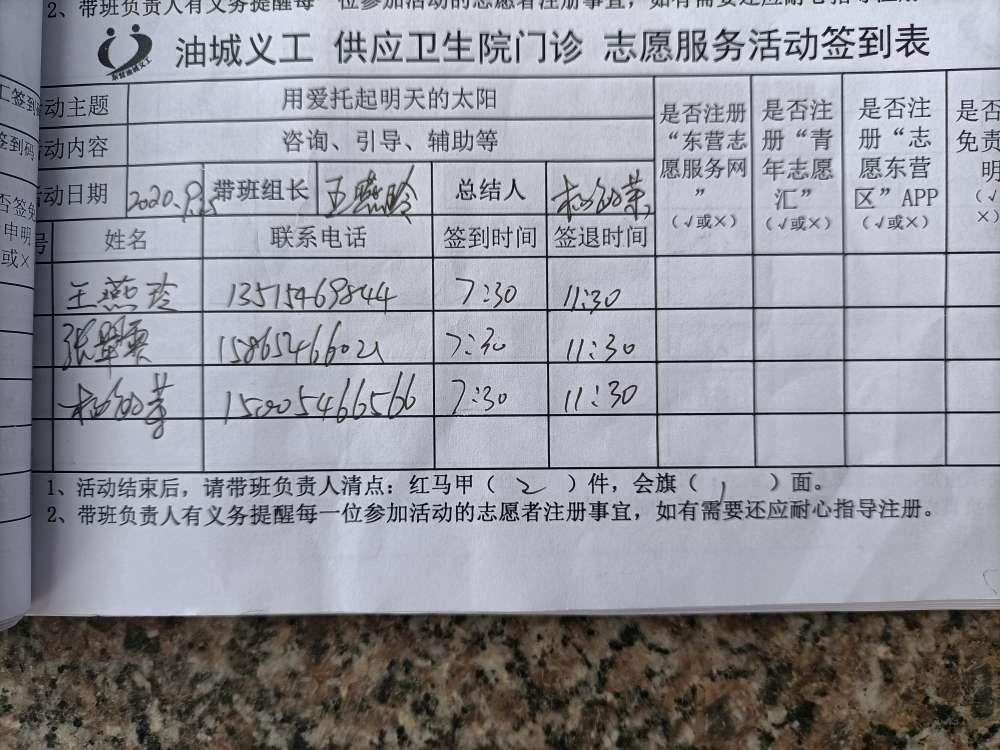 2、带班负责人有义务提醒每一位参加活动的志愿者注册事宜，如有需要还应耐心指导注册。
油城义工 供应卫生院门诊 志愿服务活动签到表
东营油城义工
动主题 用爱托起明天的太阳 是否注册“东营志愿服务网”（√或×） 是否注册“青年志愿汇”（√或×） 是否注册“志愿东营区”APP（√或×） 是否 免责 明（√ ×）
动内容 咨询、引导、辅助等
动日期 2020.9. 带班组长 王燕玲 总结人
号 姓名 联系电话 签到时间 签退时间
王燕玲 13515469844 7:30 11:30
张 7:30 11:30
15005466566 7:30 11:30
1、活动结束后，请带班负责人清点：红马甲（ 2 ）件，会旗（ 1 ）面。
2、带班负责人有义务提醒每一位参加活动的志愿者注册事宜，如有需要还应耐心指导注册。